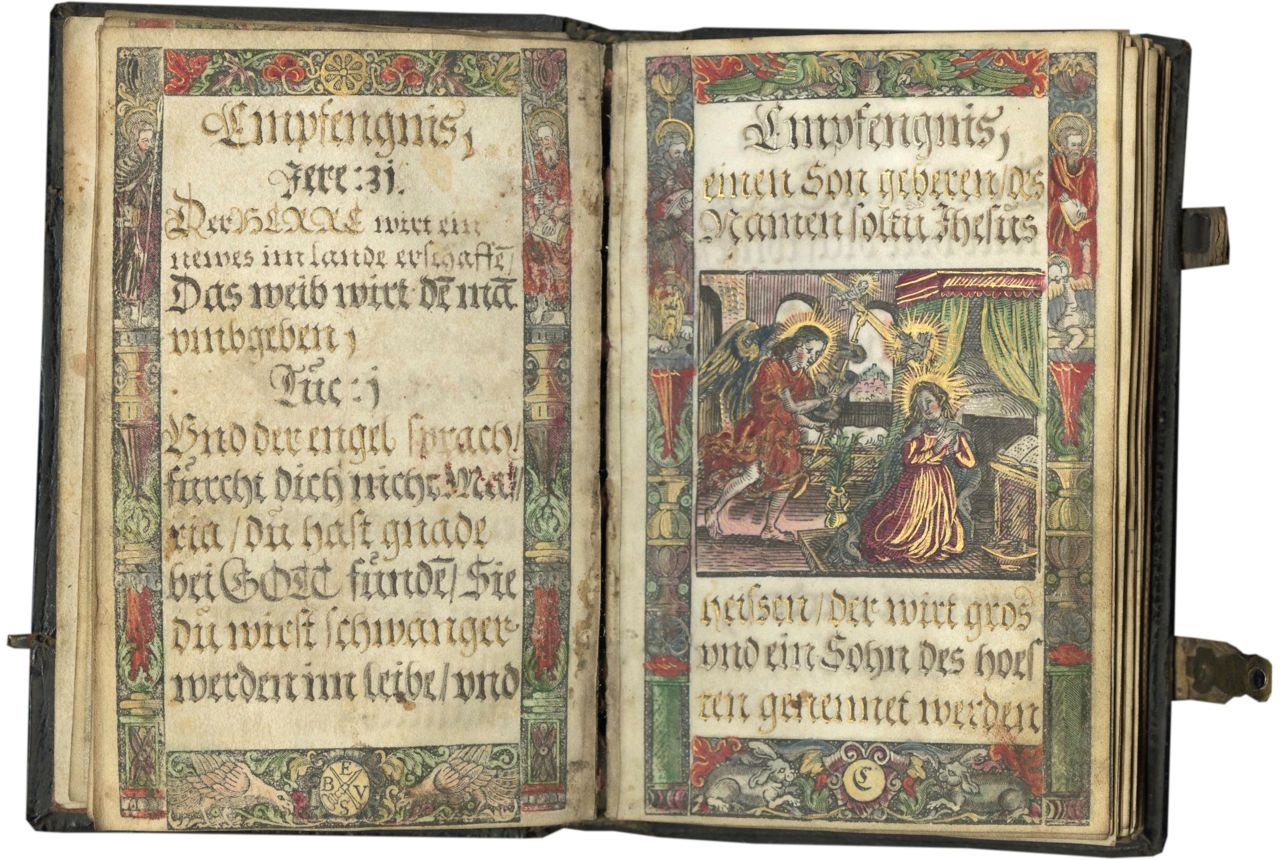 Empfengnis,
Jere: 31.
Der HERRE wirt ein
newes im lande erschaffē/
Das weib wirt dē mā
vmbgeben,
Luc: j
Vnd der engel sprach/
fürcht dich nicht Ma/
ria/du hast gnade
bei GOTT fundē/Sie
du wirst schwanger
werden im leibe/vnd
E
B V
S
Empfengnis,
einen Son geberen/des
Namen soltu Jhesus
heissen/der wirt gros
vnd ein Sohn des hoes
ten genennet werden
C